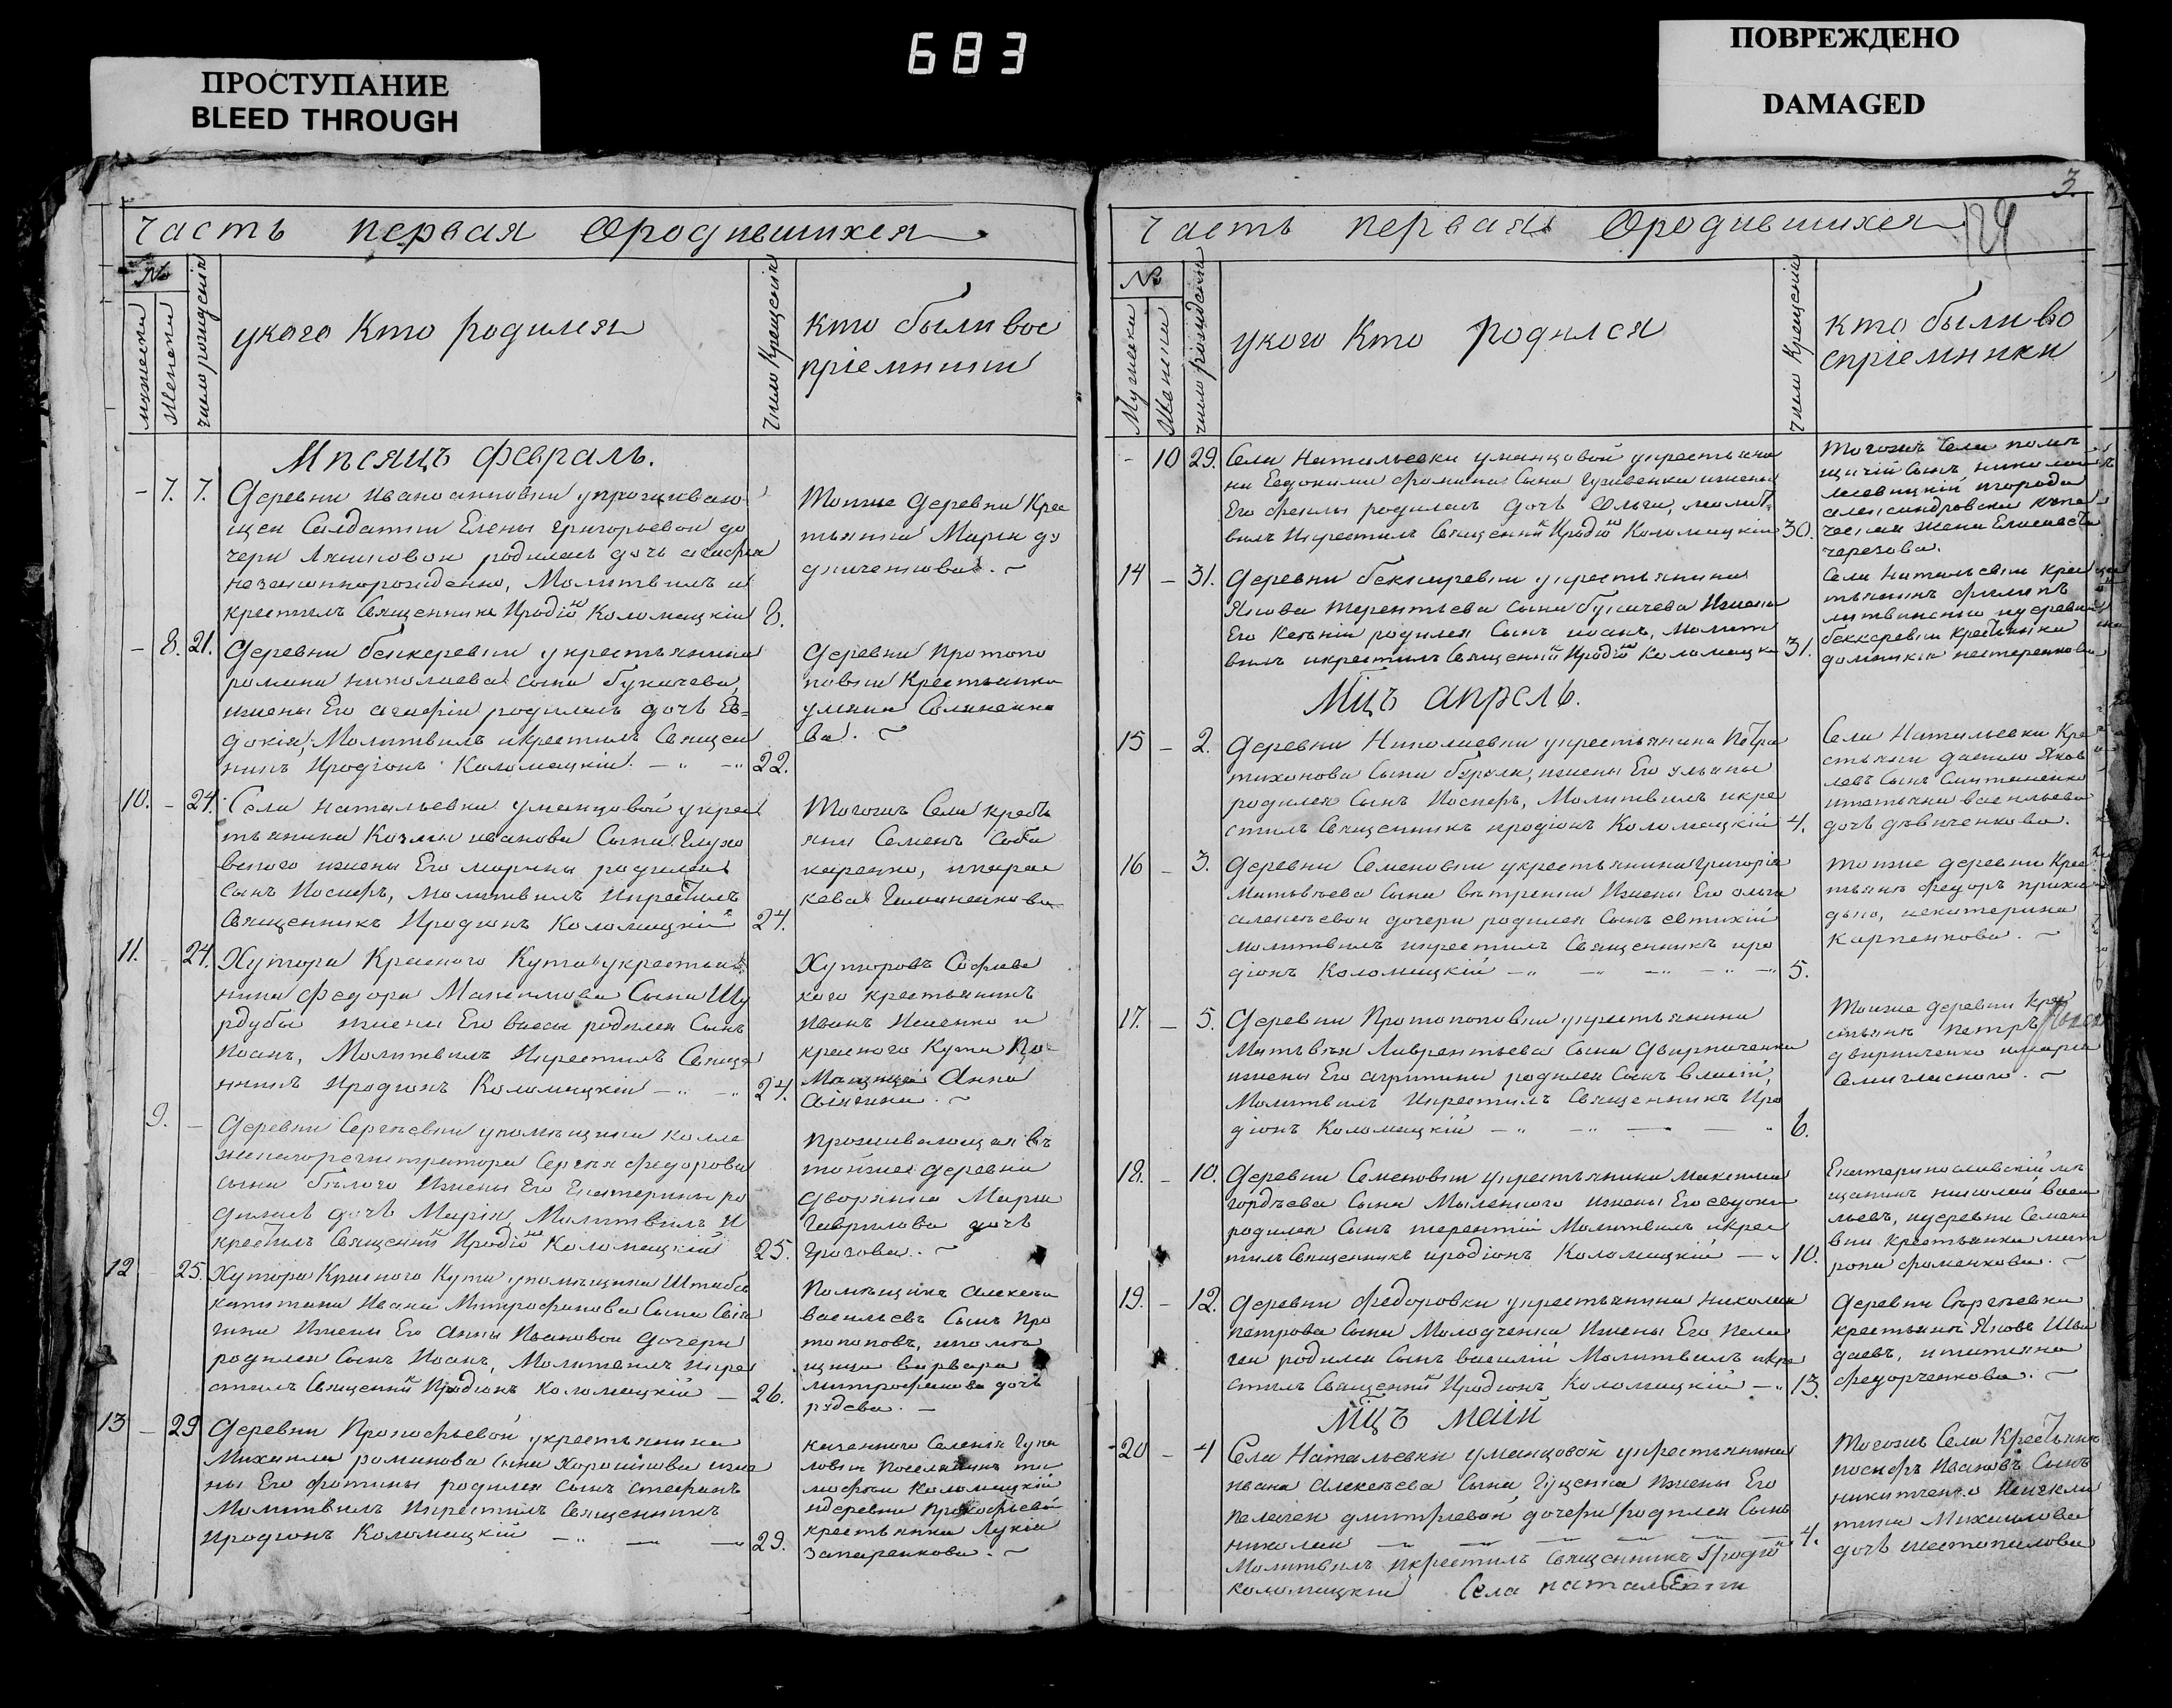 683
ПРОСТУПАНИЕ
BLEED THROUGH
ПОВРЕЖДЕНО
DAMAGED
часть первая Ородившихся
№
мужески
женски
число рождения
укого Кто родился
число Крещения
кто были вос
пріемники
Мѣсяцъ февраль.
- 7. 7.
Деревни Иваноанновки упроживаю
щей Солдатки Елены григорьевой до
чери родилась дочь агафия
незаконнорожденно, Молитвилъ и
крестилъ Священникъ Иродіонъ Коломацкій 8.
Тойже Деревни Крес
тьянка Марія
- 8. 21.
Деревни беккеревки укрестьянина
романа николаева сына букачева
ижены Его агафіи родилась дочь Ев=
докія, Молитвилъ икрестилъ Священ
никъ Иродіонъ Коломацкій. 22.
Деревни Протопо
повки Крестьянка
ульяна
ва.
10. - 24.
Села натальевки уманцовой укрес
тьянина Козмы иванова Сына Глухо
вского ижены Его марины родился
сынъ Иосифъ, молитвилъ икрестилъ
Священникъ Иродіонъ Коломацкій 24.
Тогожъ Села крестья
янин Семенъ Соба
каренко, ипарас
кева
11. 24.
Хутора Красного Кута укрестья
нина федора Максимова Сына Шу
рдубы ижены Его васы родился Сынъ
Иоанъ, Молитвилъ Икрестилъ Свяще
нникъ Иродіонъ Коломацкій 24.
Хуторовъ Софиев
кого крестьянинъ
Иванъ Ищенко и
красного Кута По-
Мѣщица Анна
Свѣчина.
9. -
Деревни Сергѣевки упомѣщика колле
жского регистратора Сергѣя федорова
сына бѣлого Ижены Его Екатерины ро
дилась дочь Марія, Молитвилъ И
крестилъ Священникъ Иродіонъ Коломацкій 25.
Проживающая въ
тойже деревни
дворянка Марія
Гаврилова дочь
Грогова.
12 25.
Хутора Красного Кута упомѣщика Штабсъ
капитана Ивана Митрофанова Сына Свѣ
чина Ижены Его Анны Ивановой дочери
родился Сынъ Иоанъ, Молитвилъ икре
стилъ Священникъ Иродіонъ Коломацкій 26.
Помѣщикъ алексѣй
васильевъ Сынъ Про
топоповъ, ипомѣ
щица варвара
митрофанова дочь
рудева.
13 - 29
Деревни Прокофьевой укрестьянина
Михаила романова сына Хорошилова иже
ны Его фотины родился сынъ стефанъ
Молитвилъ Икрестилъ Священникъ
Иродіонъ Коломацкій 29.
казенного Селенія
поселянинъ ти
мофей Коломацкій
идеревни Прокофьевой
крестьянка Лукія
Запаренкова.
3.
часть первая Ородившихся
№
Мужески
Женски
число рожденія
укого Кто родился
число Крещенія
кто были во
спріемники
- 10 29.
Села Натальевки уманцовой укрестьяни
на Евдокима фомина Сына ижены
Его феклы родилась дочь Ольга, молит
вилъ Икрестилъ Священникъ Иродіонъ Коломацкій 30.
Тогожъ Села помѣ
щичій Сынъ николай
игорода
александровска купе
ческая жена Елисавета
черезова.
14 - 31.
Деревни беккеревки укрестьянина
Якова терентьева сына букачева Ижены
Его Ксеніи родился Сынъ иоанъ, Молит
вилъ икрестилъ Священникъ Иродіонъ Коломацкій 31.
Села натальевки крес
тьянинъ филипъ
литвиненко идеревни
беккеревки крестьянка
домникия нестеренкова
Мцъ апрель.
15 - 2.
Деревни Николаевки укрестьянина Петра
тихонова Сына бурлы, ижены Его ульяны
родился Сынъ Иосифъ, Молитвилъ икре
стилъ Священникъ иродіонъ Коломацкій 4.
Села Натальевки Кре
стьянин данило Яков
левъ Сынъ
итатьяна васильева
дочь дѣвиченкова.
16 - 3.
Деревни Семеновки укрестьянина григорія
Матвѣева Сына вѣтренка Ижены Его ольги
алексѣевой дочери родился Сынъ евтихій
молитвилъ икрестилъ Священникъ иро
діонъ Коломацкій 5.
тойже деревни Крес
тьянъ федоръ прихо
дько, иекатерина
карпенкова.
17. - 5.
Деревни Протопоповки укрестьянина
Матвѣя Лаврентьева Сына Двирниченка
ижены Его агрипины родился сынъ власій,
Молитвилъ Икрестилъ Священникъ Иро
діонъ Коломацкій 6.
Тойже деревни кре
стьянъ петръ
двирниченко имарія
Семигласного.
18. - 10.
Деревни Семеновки укрестьянина максима
гордѣева Сына Мыленкого ижены Его евдокіи
родился Сынъ терентій Молитвилъ икрес
тилъ Священникъ иродіонъ Коломацкій 10.
Екатеринославскій мѣ
щанинъ николай васи
льевъ, идеревни Семено
вки крестьянка мат
рона фоменкова.
19. - 12.
Деревни федоровки укрестьянина николая
петрова Сына Молодченка Ижены Его пела
геи родился Сынъ василій Молитвилъ икре
стилъ Священникъ Иродіонъ Коломацкій 13.
Деревни Сергѣевки
крестьянъ Яковъ Шва
даевъ, итатяна
федорченкова.
Мцъ маій
20 - 4
Села Натальевки уманцовой укрестьянина
ивана алексѣева Сына Гущенка Ижены Его
пелагеи дмитріевой дочери родился Сынъ
николай 4.
Молитвилъ Икрестилъ Священникъ Иродіо
коломацкій Села натальевки
Тогожъ Села Крестьянъ
иосифъ Ивановъ Сынъ
никитченко
Михаилова
дочь шестопалова